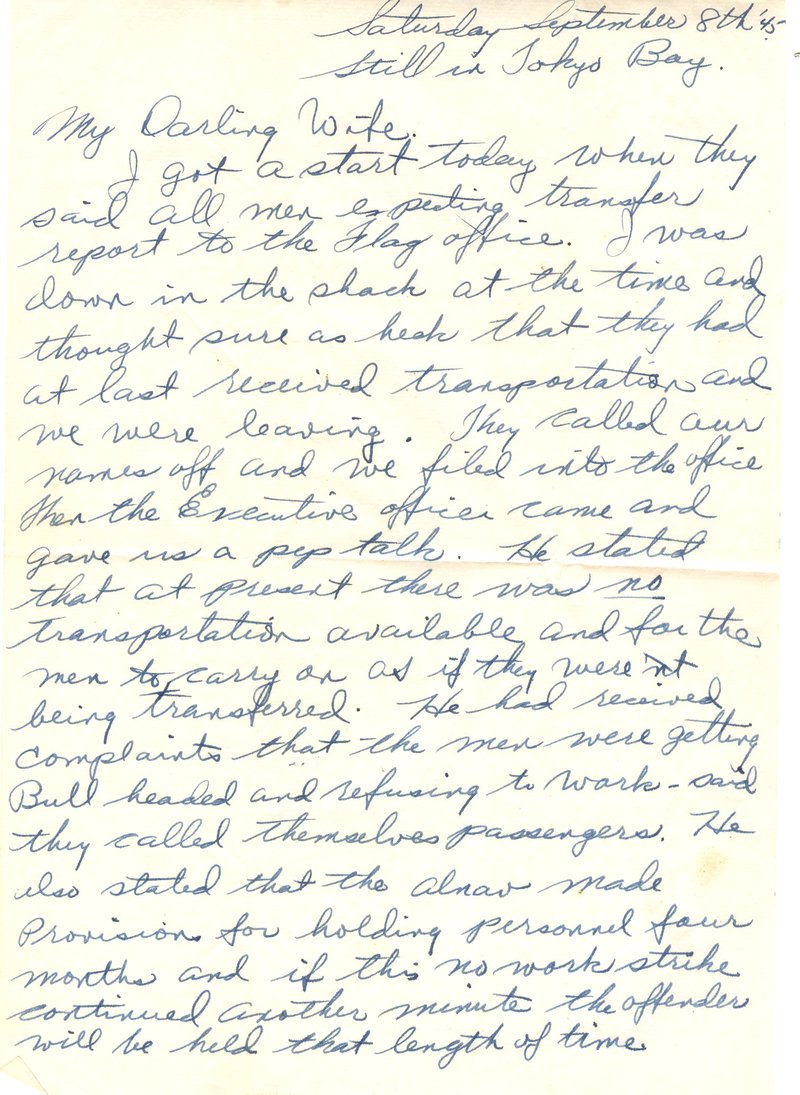 Saturday September 8th '45
Still in Tokyo Bay.
My Darling Wife.
I got a start today when they
said all men expecting transfer
report to the Flag office. I was
down in the shack at the time and
thought sure as heck that they had
at last received transportation and
we were leaving. They called our
names off and we filed into the office
Then the Executive officer came and
gave us a pep talk. He stated
that at present there was no
transportation available and for the
men to carry on as if they weren't
being transferred. He had received
complaints that the men were getting
Bull headed and refusing to work - said
they called themselves passengers. He
also stated that the alnav made
Provisions for holding personnel four
months and if this no work strike
continued another minute the offender
will be held that length of time